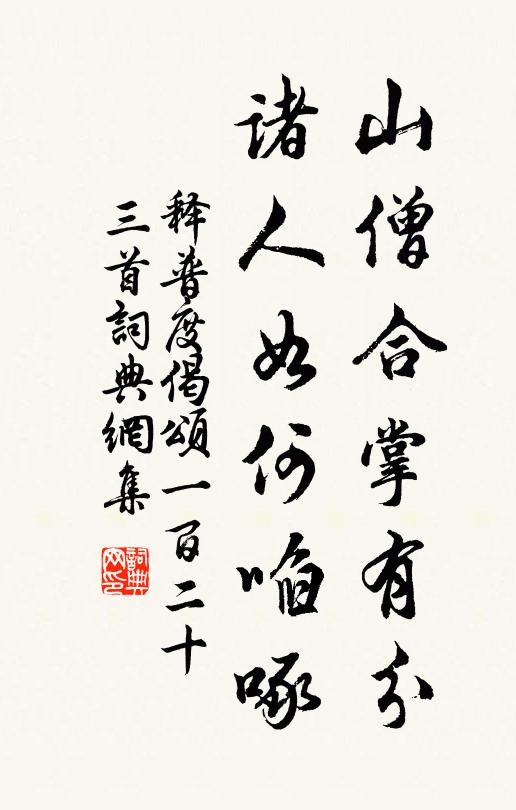 山僧合掌有分
諸人如何啗啄
释普度偈頌一百二十
三首詞典網集
詞典網印